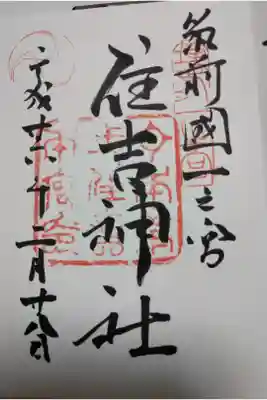 筑前國一之宮
住吉神社
平成十六年十二月十八日